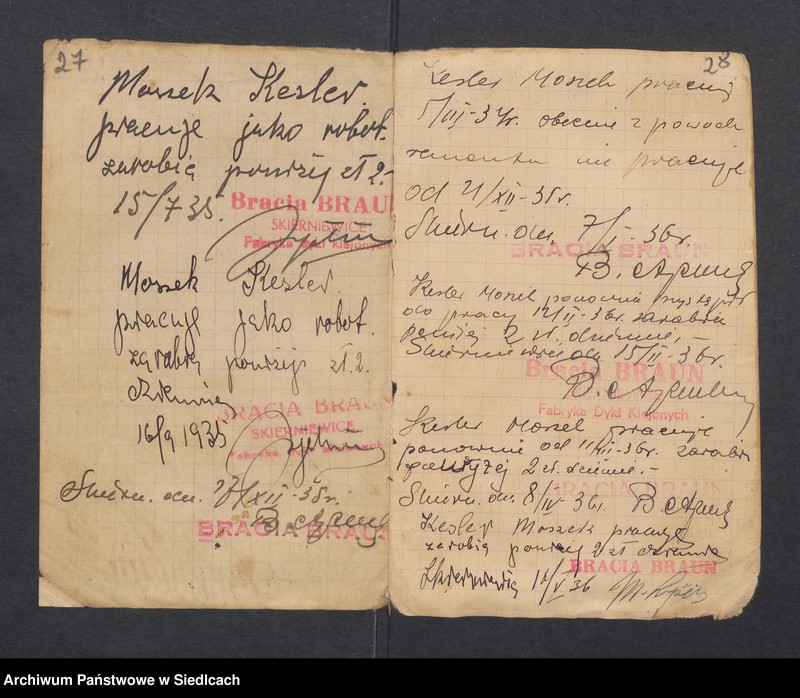 27
Mosek Kesler.
pracuje jako robot.
zarobią poniżej zł 2.-
15/7 35.
Bracia BRAUN
SKIERNIEWICE
Fabryka Dykt Klejonych
Mosek Kesler.
pracuje jako robot.
zarabia poniżej zł. 2.
dziennie
16/9 1935
BRACIA BRAUN
SKIERNIEWICE
Fabryka Dykt Klejonych
Skiern. dn. 27/XII-35r.
BRACIA BRAUN
28
Kesler Mosek pracuj
/III-34r. obecnie z powodu
remontu nie pracuje
od 21/XII-35r.
Skiern. dn. 7/I-36r.
BRACIA BRAUN
Kesler Mosek ponownie
do pracy 12/II-36r. zarabia
poniżej 2 zł. dziennie.-
Skierniewice dn. 15/II-36r.
Bracia BRAUN
Fabryka Dykt Klejonych
Kesler Mosek pracuje
ponownie od 11/III-36r. zarabia
2 zł. dziennie.-
BRACIA BRAUN
Skiern. dn. 8/IV-36r.
Kesler Mosek pracuje
zarobią poniżej 2 zł dziennie
BRACIA BRAUN
/V 36
Archiwum Państwowe w Siedlcach